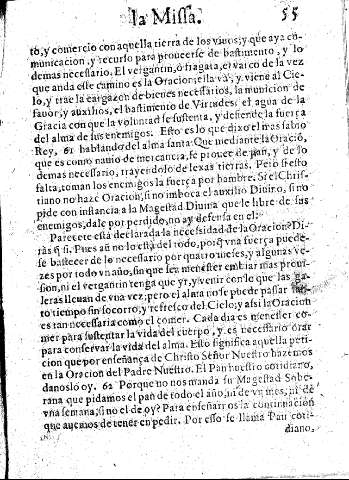 la Missa. 55
to, y comercio con aquella tierra de los viuos; y que aya cõ-
municacion, y recurso para proueerse de bastimento, y lo
demas necessario. El vergantin, ò fragata, el vaxco de la vez
que anda este camino es la Oracion; ella va, y viene al Cie-
lo, y trae la cargazon de bienes necessarios, la municion de
fauor, y auxilios, el bastimento de Virtudes, el agua de la
Gracia con que la voluntad se sustenta, y defiende la fuerça
del alma de sus enemigos. Esto es lo que dixo el mas sabio
Rey, 61 hablando del alma santa: Que mediante la Oraciõ,
que es como nauio de mercancia, se prouee de pan, y de lo
demas necessario, trayendolo de lexas tierras. Pero si esto
falta, toman los enemigos la fuerça por hambre. Si el Chris-
tiano no haze Oracion, si no imboca el auxilio Diuino, si no
pide con instancia à la Magestad Diuina que le libre de sus
enemigos, dale por perdido, no ay defensa en el.
Parecete està declarada la necessidad de la Oracion? Di-
ràs q̃ si. Pues aũ no lo està del todo, porq̃ vna fuerça puede-
se bastecer de lo necessario por quatro meses, y algunas ve-
zes por todo vn año, sin que sea menester embiar mas proui-
sion, ni el vergantin tenga que yr, y venir con lo que las ga-
leras lleuan de vna vez; pero el alma no se puede passar
to tiempo sin socorro, y refresco del Cielo; y assi la Oracion
es tan necessaria como el comer. Cada dia es menester co-
mer para sustentar la vida del cuerpo, y es necessario orar
para conseruar la vida del alma. Esto significa aquella peti-
cion que por enseñança de Christo Señor Nuestro hazemos
en la Oracion del Padre Nuestro. El Pan nuestro cotidiano,
danoslo oy. 62 Porque no nos manda su Magestad Sobe-
rana que pidamos el pan de todo el año, ni de vn mes, ni de
vna semana, si no el de oy? Para enseñarnos la continuacion
que auemos de tener en pedir. Por esso se llama Pan coti-
diano,